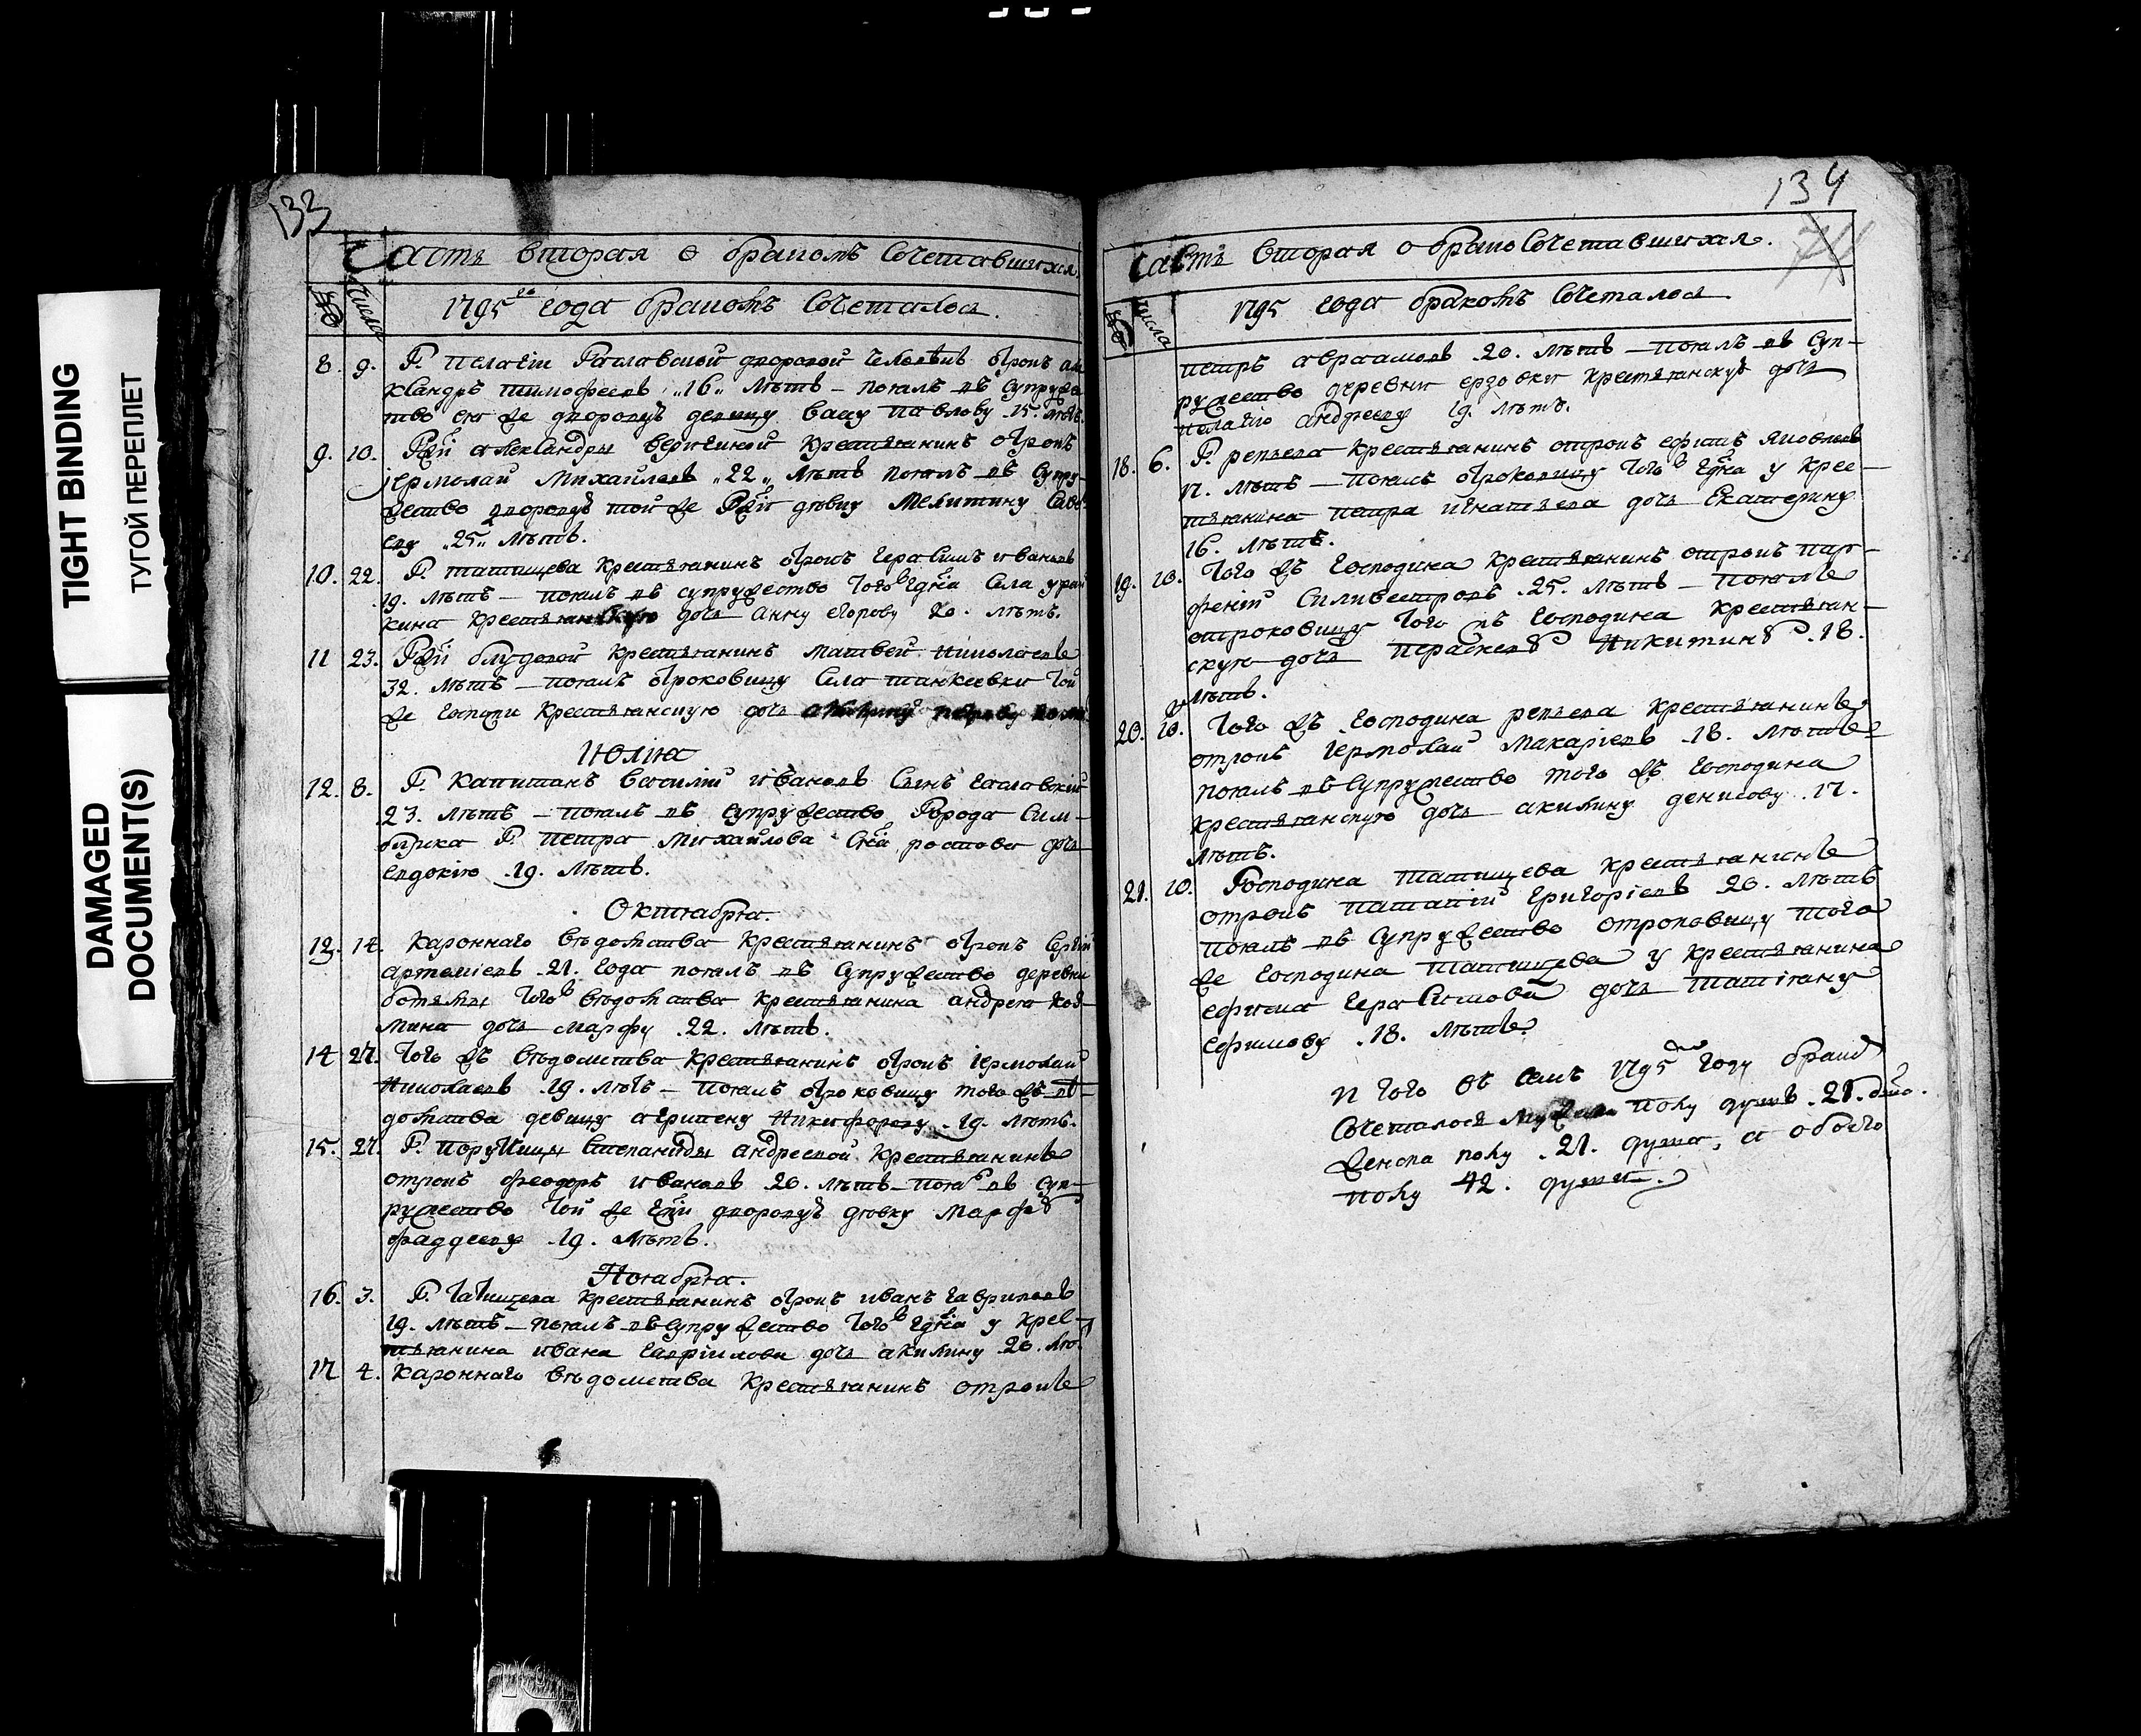 TIGHT BINDING
ТУГОЙ ПЕРЕПЛЕТ
DAMAGED
DOCUMENT(S)
133
Часть вторая о бракомъ сочетавшихся
№ числа
1795 го года бракомъ сочеталося.
8. 9. Г. Пелагіи дворовой человѣкъ отрокъ
тимофеевъ „16„ лѣтъ – поялъ въ супруже
ство ея же дворовую девицу Васу Павлову 15 лѣтъ.
9. 10. Гжи александры крестьянинъ отрокъ
іермолай Михаилевъ „22„ лѣтъ поялъ въ супру-
жество дворовую той же Гжи дѣвку Мелитину
„25„ лѣтъ.
10. 22. Г. татищева крестьянинъ отрокъ Герасимъ ивановъ
19. лѣтъ – поялъ въ супружество тогожъ Гдна села урай
кина крестьянскую дочь Анну егорову 20. лѣтъ.
11 23. Гжи крестьянинъ матвей николаевъ
32. лѣтъ – поялъ отроковицу села танкеевки той
же госпожи крестьянскую дочь
Июлия
12. 8. Г. Капитанъ василій ивановъ сынъ
23. лѣтъ – поялъ въ супружество города Сим-
бирска Г. петра михайлова сна ростова дочь
евдокію 19. лѣтъ.
Октября.
13. 14. Каронного вѣдомства крестьянинъ отрокъ Сергій
артемиевъ 21. года поялъ въ супружество деревни
ботьмы тогожъ вѣдомства крестьянина андрея Коз-
мина дочь марфу 22. лѣтъ.
14 27. Того жъ вѣдомства крестьянинъ отрокъ іермолай
Николаевъ 19. лѣтъ – поялъ отроковицу того жъ вѣ-
домства девицу агрипену Никифорову 19. лѣтъ.
15. 27. Г. Степаниды андреевой крестьянинъ
отрокъ феодоръ ивановъ 20. лѣтъ – поялъ въ суп-
ружество той же Гжи дворовую дѣвку марфу
фаддееву 19. лѣтъ.
Ноября.
16. 3. Г. Татищева крестьянинъ отрокъ иванъ гавриловъ
19. лѣтъ – поялъ въ супружество тогожъ Гдна у крес-
тьянина ивана гавріилова дочь акилину 20. лѣт
17 4. Каронного вѣдомства крестьянинъ отрокъ
134
Часть вторая о брако сочетавшихся.
№ числа
1795 года бракомъ сочеталося.
петръ авраамовъ 20. лѣтъ – поялъ въ суп-
ружество деревни ерзовки крестьянскую дочь
пелагію андрееву 19. лѣтъ.
18. 6. Г. репьева крестьянинъ отрокъ ефимъ яковлевъ
17. лѣтъ – поялъ отроковицу тогожъ Гдна у крес-
тьянина петра игнатьева дочь екатерину
16. лѣтъ.
19. 10. Того жъ господина крестьянинъ отрокъ пар-
феній Силивестровъ 25. лѣтъ – поялъ
отроковицу того жъ господина крестьян-
скую дочь параскеву Никитину 18.
лѣтъ.
20. 10. Того жъ господина репьева крестьянинъ
отрокъ іермолай макаріевъ 18. лѣтъ
поялъ въ супружество того жъ господина
крестьянскую дочь акилину денисову 17.
лѣтъ.
21. 10. Господина татищева крестьянинъ
отрокъ григоріевъ 20. лѣтъ
поялъ въ супружество отроковицу того
же господина татищева у крестьянина
ефима герасимова дочь татіяну
ефимову 18. лѣтъ.
И того въ семъ 1795 году бракомъ
сочеталося мужеска полу душъ 21.
женска полу 21. душа, а обоего
полу 42. души.